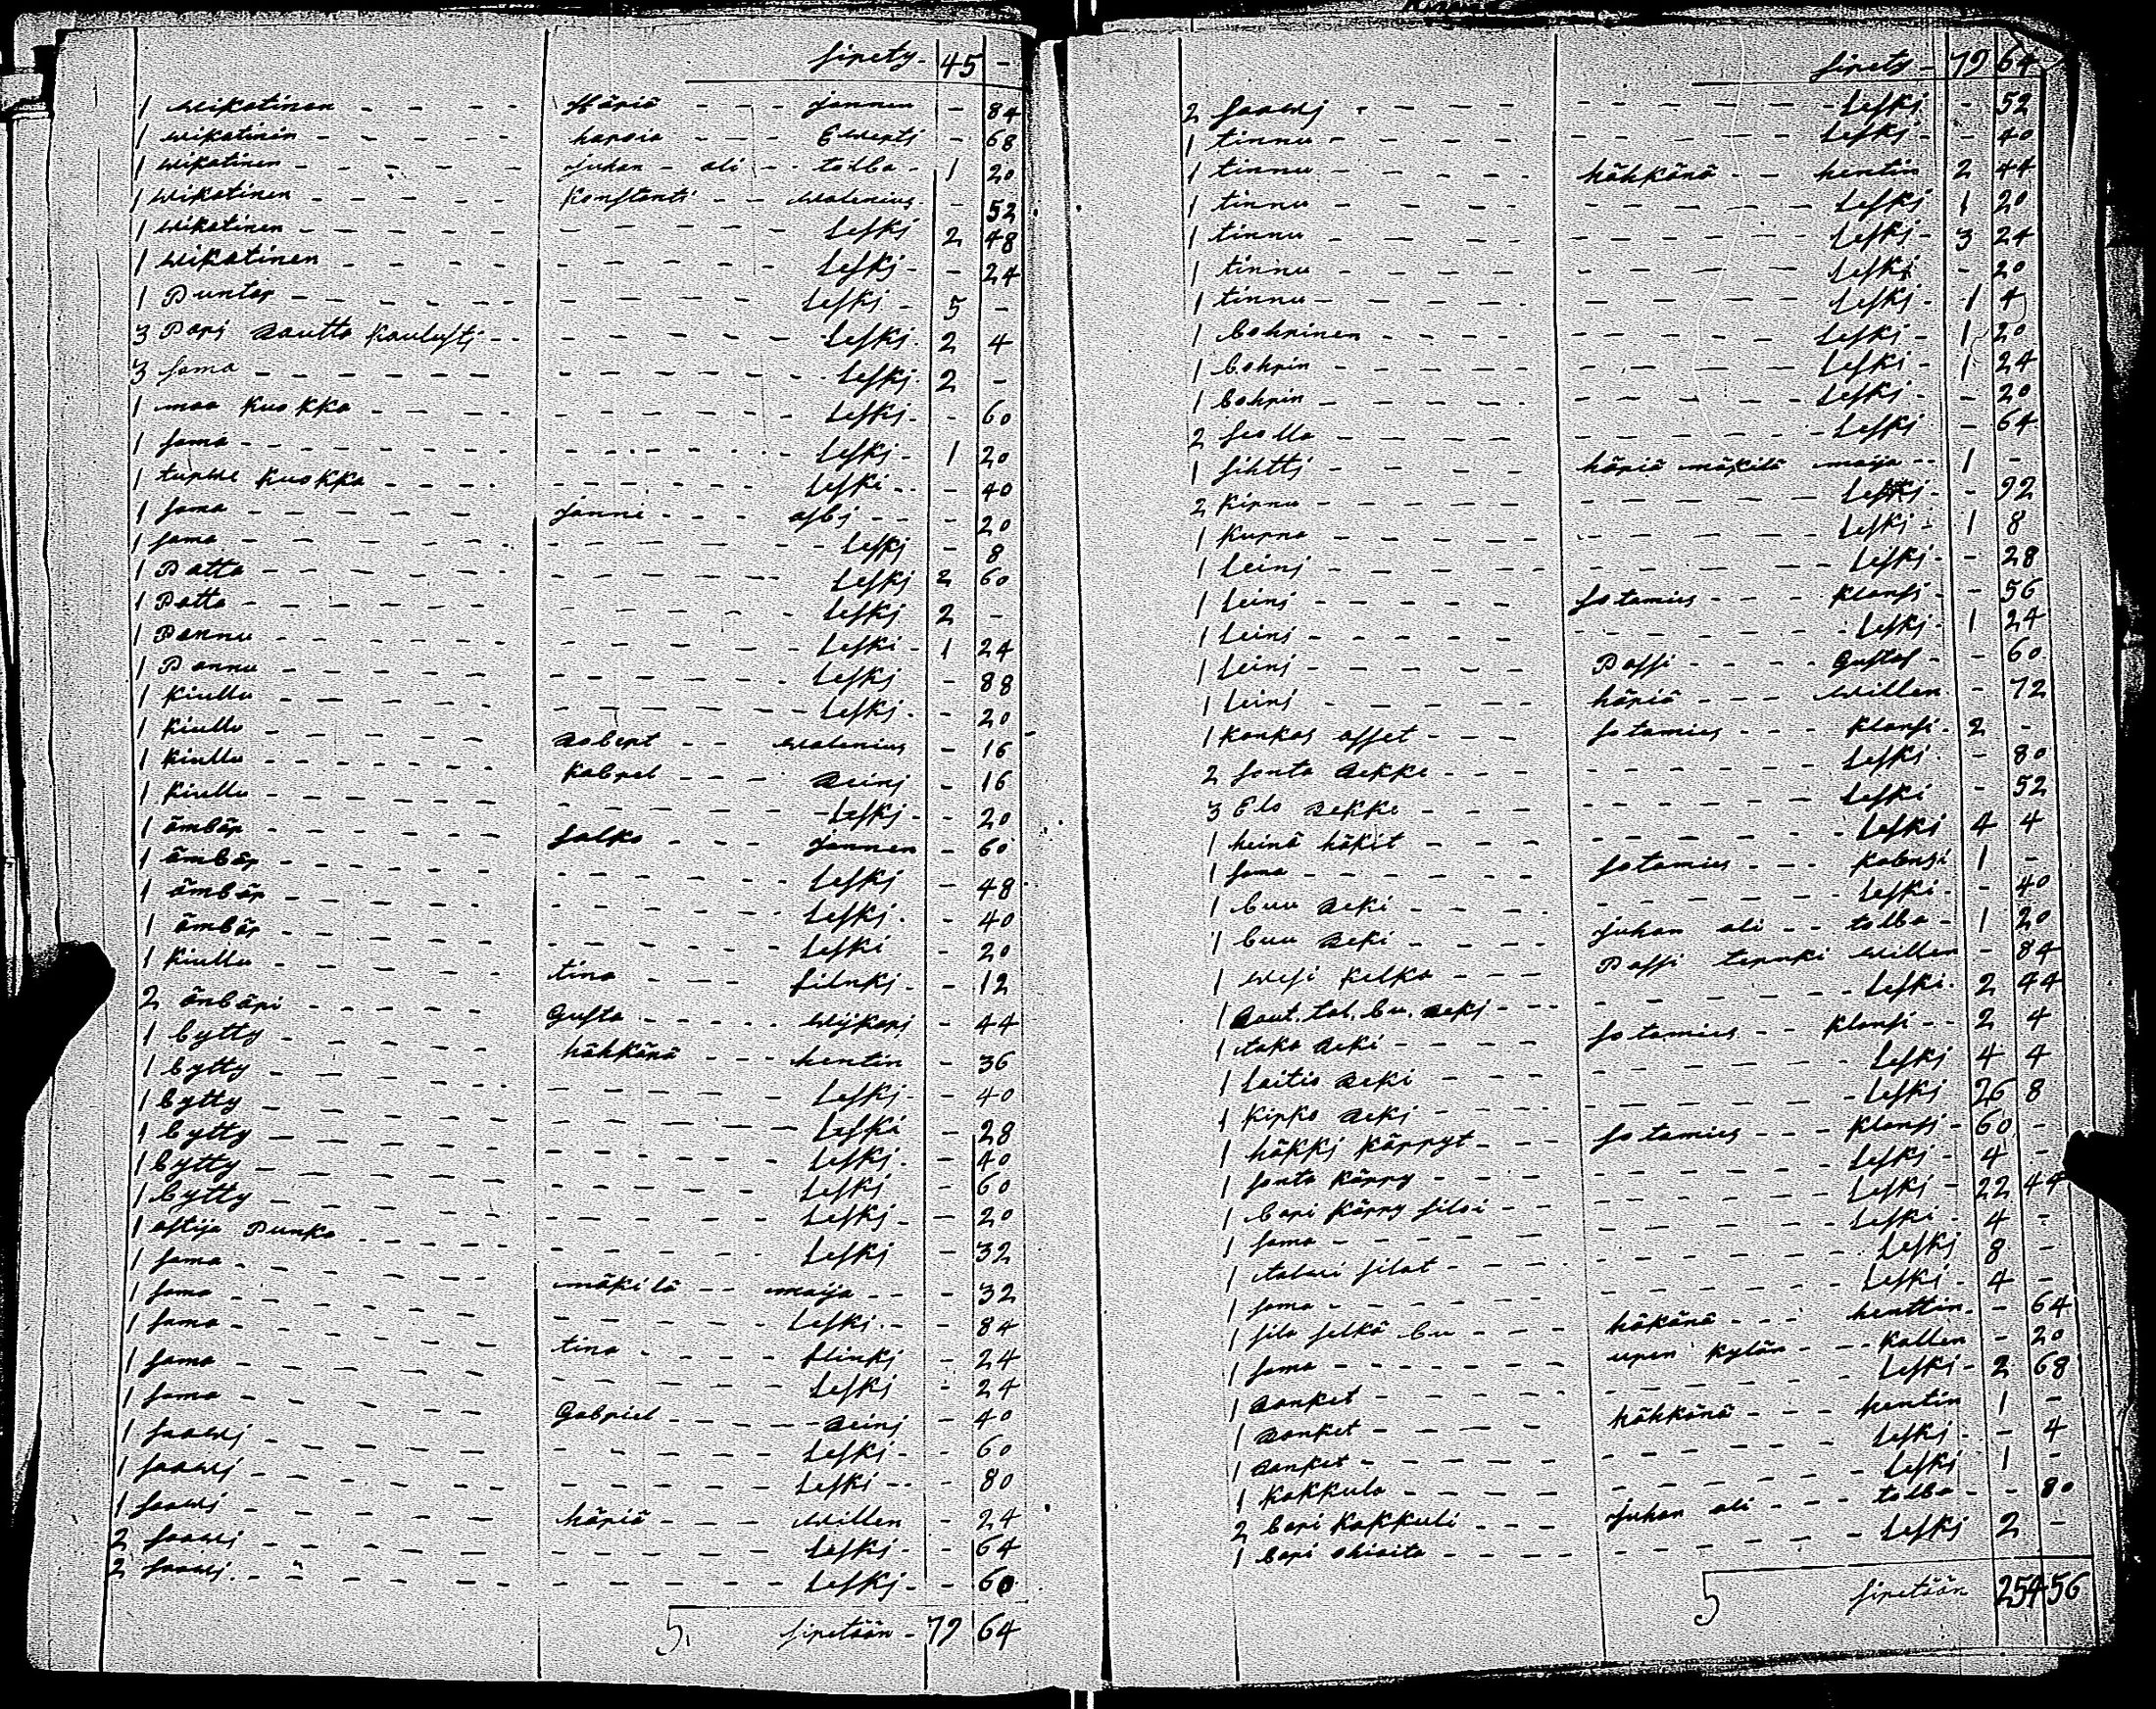 sirety - 45 -
1 Wikatinen - - - - Häriä - - - Jannen - 84
1 Wikatinin - - - - haroia - - - Ewerti - 68
1 Wikatinen - - - - Juhan - ali - - tolba - 1 20
1 Wikatinen - - - - Konstanti - - Walenius - 52
1 Wikatinen - - - - Leski 2 48
1 Wikatinen - - - - Leski - - 24
1 Puntar - - - - Leski - 5 -
3 Pari Rautta Kaulusti - - - - Leski. 2 4
3 Sama - - - - Leski. 2 -
1 maa Kuokka - - - - Leski - - 60
1 Sama - - - - Leski - 1 20
1 turwe Kuokka - - - - Leski - - 40
1 Sama - - - - Janne - - - asbi - - 20
1 Sama - - - - Leski - 8
1 Patta - - - - Leski 2 60
1 Patta - - - - Leski 2 -
1 Pannu - - - - Leski - 1 24
1 Pannu - - - - Leski - 88
1 Kiullu - - - - Leski - - 20
1 Kiullu - - - - Robert - - Walenius - 16
1 Kiullu - - - - Kabrel - - - Reini - 16
1 Kiullu - - - - Leski - - 20
1 ämbär - - - - Salko - - - Jannen - 60
1 ämbär - - - - Leski - 48
1 ämbär - - - - Leski. - 40
1 ämbär - - - - Leski - 20
1 Kiullu - - - - tina - - - flinki - - 12
2 änbäri - - - - Gusta - - - Wijkari - 44
1 bytty - - - - hähkänä - - - hentin - 36
1 bytty - - - - Leski - - 40
1 bytty - - - - Leski - 28
1 bytty - - - - Leski. - 40
1 bytty - - - - Leski - 60
1 bytty - - - - Leski - - 20
1 astija Punka - - - - Leski - 32
1 Sama - - - - mäkilä - - maija - - 32
1 Sama - - - - Leski. - 84
1 Sama - - - - tina - - - flinki - 24
1 Sama - - - - Leski - 24
1 Sama - - - - Gabriel - - - Reini - 40
1 Saawi - - - - Leski - - 60
1 Saawi - - - - Leski - - 80
1 Saawi - - - - häriä - - - Willen - 24
2 Saawi - - - - Leski - - 64
2 Saawi - - - - Leski - - 60
5. siretään - 79 64
sirety - 79 64
2 Saawi - - - - Leski - 52
1 tinnu - - - - Leski - - 40
1 tinnu - - - - hähkänä - - hentin 2 44
1 tinnu - - - - Leski 1 20
1 tinnu - - - - Leski - 3 24
1 tinnu - - - - Leski - 20
1 tinnu - - - - Leski. - 1 4
1 bohrinen - - - - Leski - 1 20
1 bohrin - - - - Leski - 1 24
1 bohrin - - - - Leski - - 20
2 Seolla - - - - Leski - 64
1 sihtti - - - - häriä mäkilä maija - - 1 -
2 Kirnu - - - - Leski - - 92
1 Kurna - - - - Leski - 1 8
1 Leini - - - - Leski - - 28
1 Leini - - - - Sotamies - - - Klansi - - 56
1 Leini - - - - Leski - 1 24
1 Leini - - - - Passi - - - Gustas - - 60
1 Leini - - - - häriä - - - Willen - 72
1 Kankas asset - - - Sotamies - - - Klansi - 2 -
2 Sonta Rekke - - - - Leski. - 80
3 Elo Rekke - - - - Leski - 52
1 heinä häkit - - - - Leski 4 4
1 Sama - - - - Sotamies - - - Kalensi 1 -
1 buu Reki - - - - Leski. - 40
1 buu Reki - - - - Juhan ali - - tolba - 1 20
1 Wesi Kelka - - - Passi ternki Willen - 84
1 Raut. tal. bu. Reki - - - - Leski. 2 44
1 taka Reki - - - - Sotamies - - Klansi - - 2 4
1 Laitio Reki - - - - Leski 4 4
1 Kirko Reki - - - - Leski 26 8
1 häkki Kärryt - - - Sotamies - - - Klansi - 60 -
1 Sonta Kärry - - - - Leski - 4 -
1 bari Kärry siloi - - - - Leski - 22 44
1 Sama - - - - Leski. 4 -
1 talwi silat - - - - Leski 8 -
1 Sama - - - - Leski - 4 -
1 sila selkä bu - - - häkänä - - - henttin - - 64
1 Sama - - - - uren Kylän - - Kallen - 20
1 Ranket - - - - Leski - 2 68
1 Ranket - - - - hähkänä - - - hentin 1 -
1 Ranket - - - - Leski - - 4
1 Kakkula - - - - Leski 1 -
2 bari Kakkuli - - - Juhan ali - - - tolba - - 80
1 bari ohiaita - - - - Leski 2 -
5 siretään 254 56